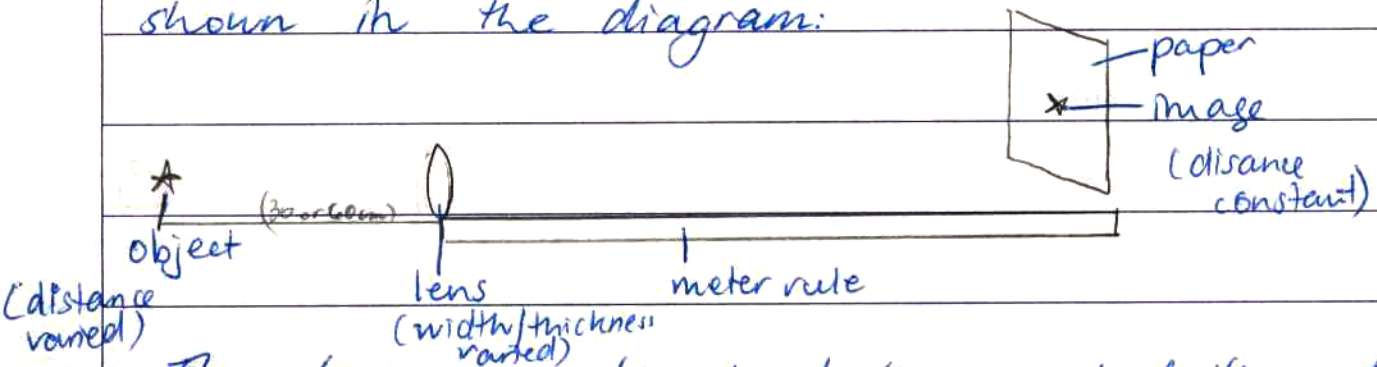 shown in the diagram:
paper
image
(disance
constant)
(30 or 60cm)
object
(distance
varied)
lens
(width/thickness
varied)
meter rule